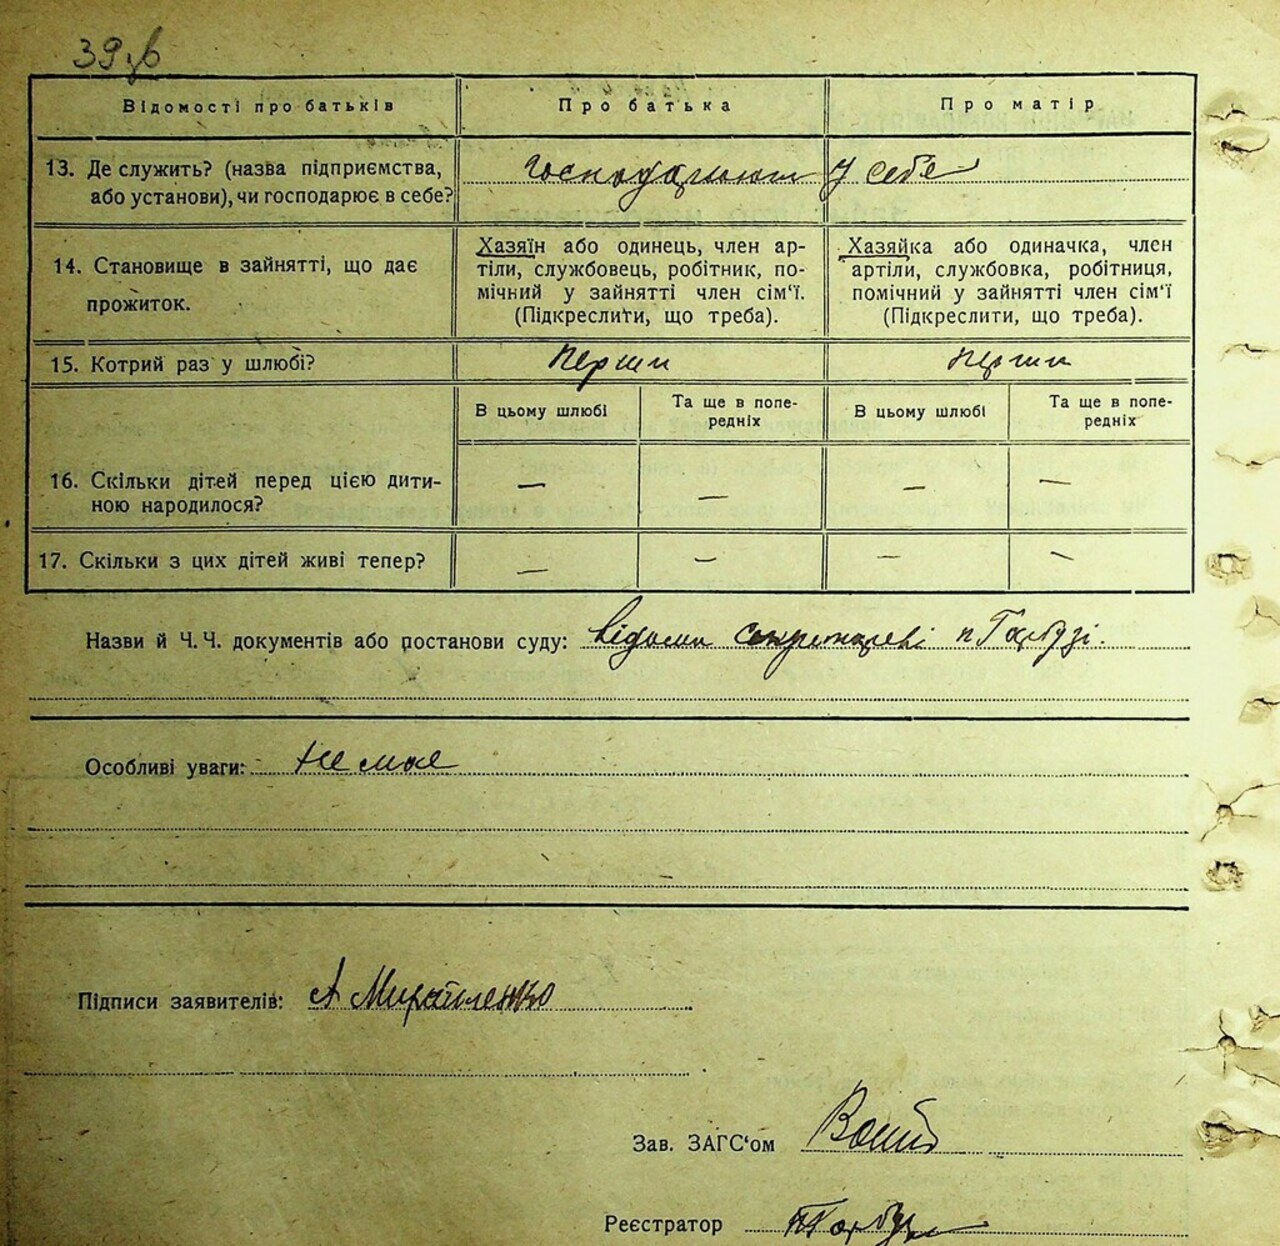 39зв
Відомості про батьків Про батька Про матір
13. Де служить? (назва підприємства, або установи), чи господарює в себе?
Господарюют у себе
14. Становище в зайнятті, що дає прожиток.
Хазяїн або одинець, член ар-
тіли, службовець, робітник, по-
мічний у зайнятті член сім‘ї.
(Підкреслити, що треба).
Хазяйка або одиначка, член
артіли, службовка, робітниця,
помічний у зайнятті член сім‘ї
(Підкреслити, що треба).
15. Котрий раз у шлюбі? Перший Перший
В цьому шлюбі Та ще в попе-
редніх
В цьому шлюбі Та ще в попе-
редніх
16. Скільки дітей перед цією дити-
ною народилося? — — — —
17. Скільки з цих дітей живі тепер? — — — —
Назви й Ч. Ч. документів або постанови суду: Відоми секретареві п Гарбузі.
Особливі уваги: Не має
Підписи заявителів: А
Зав. ЗАГС‘ом
Реєстратор